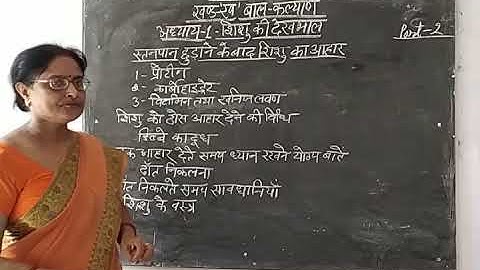 खण्ड-ख बाल-कल्याण
अध्याय-1-शिशु की देखभाल
Part-2
स्तनपान छुड़ाने के बाद शिशु का आहार
1- प्रोटीन
2- कार्बोहाइड्रेट
3- विटामिन तथा खनिज लवण
शिशु को ठोस आहार देने की विधि
डिब्बे का दूध
आहार देते समय ध्यान रखने योग्य बातें
दाँत निकलना
निकलते समय सावधानियाँ
शिशु के वस्त्र